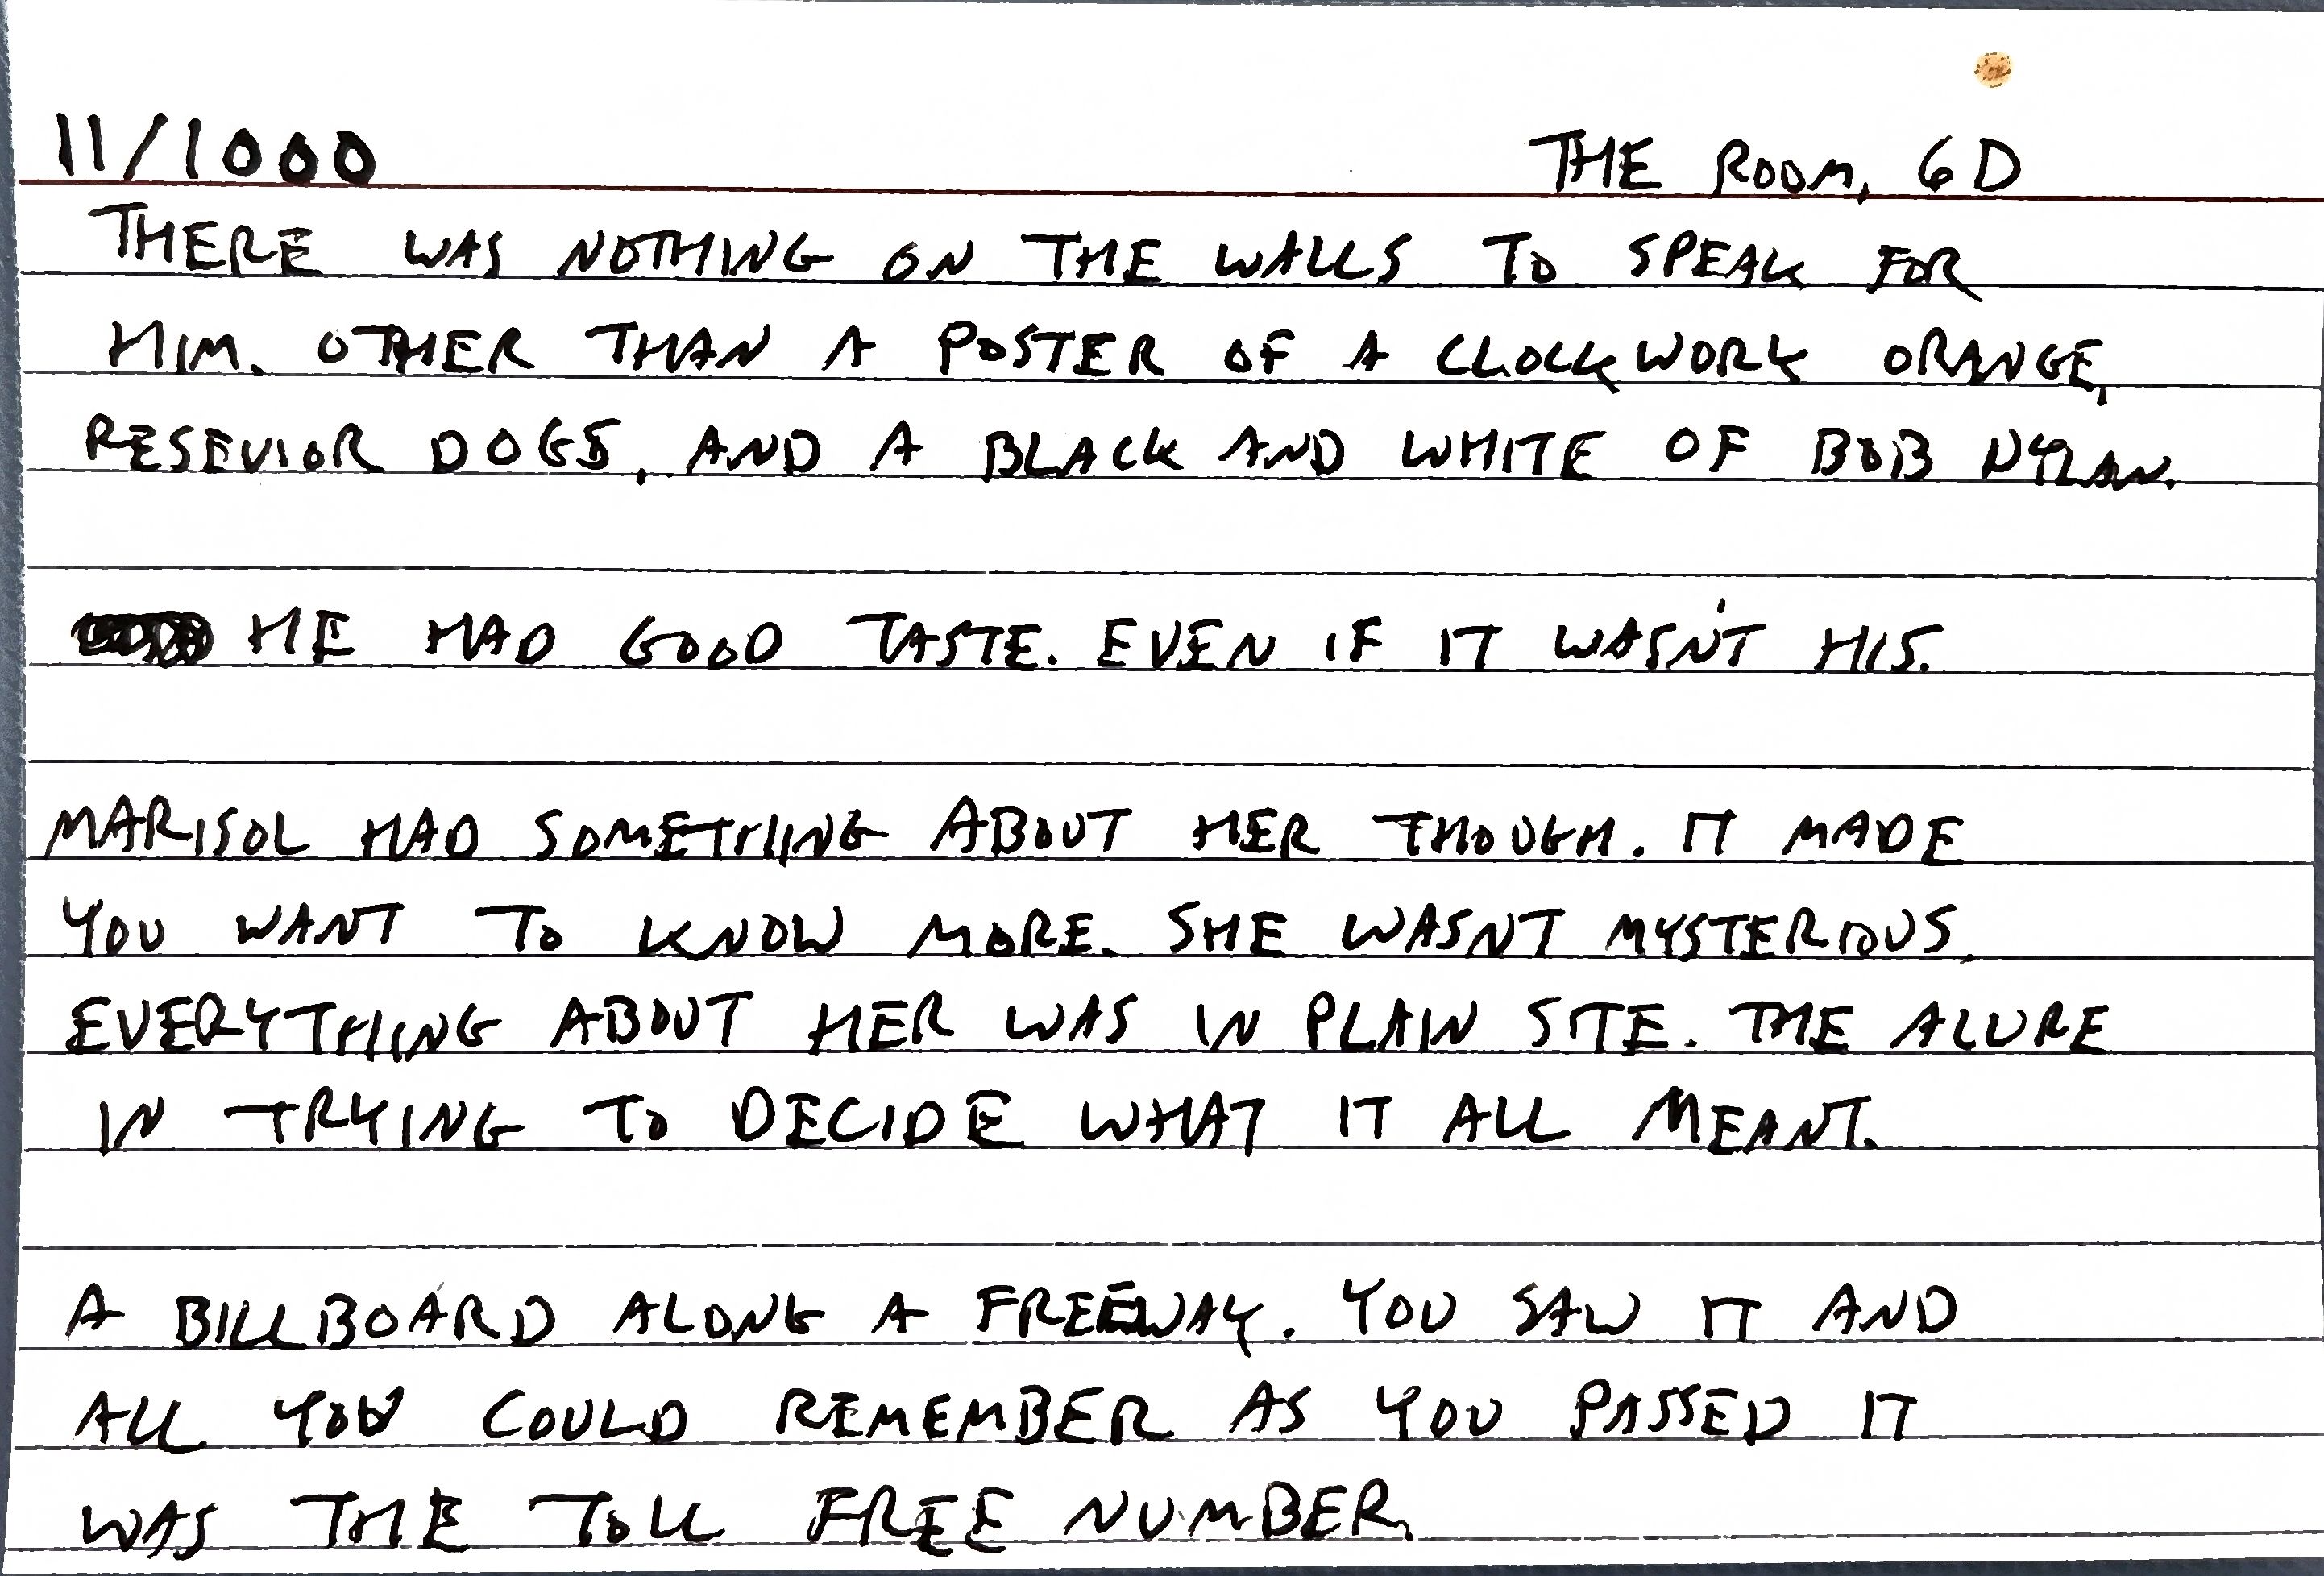 11/1000 THE ROOM, 6D
THERE WAS NOTHING ON THE WALLS TO SPEAK FOR
HIM. OTHER THAN A POSTER OF A CLOCKWORK ORANGE,
RESEVIOR DOGS, AND A BLACK AND WHITE OF BOB DYLAN.
HE HAD GOOD TASTE. EVEN IF IT WASN'T HIS.
MARISOL HAD SOMETHING ABOUT HER THOUGH. IT MADE
YOU WANT TO KNOW MORE. SHE WASNT MYSTERIOUS,
EVERYTHING ABOUT HER WAS IN PLAIN SITE. THE ALURE
IN TRYING TO DECIDE WHAT IT ALL MEANT.
A BILLBOARD ALONG A FREEWAY. YOU SAW IT AND
ALL YOU COULD REMEMBER AS YOU PASSED IT
WAS THE TOLL FREE NUMBER.